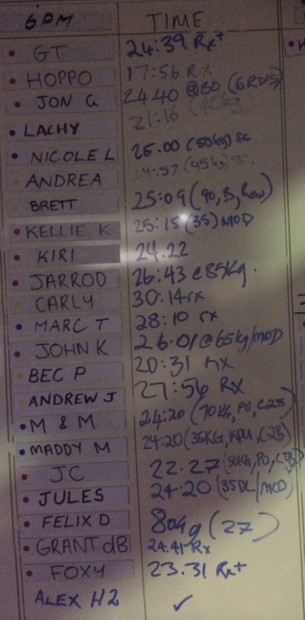 6PM TIME
GT 24:39 Rx+
HOPPO 17:56 RX
JON G 24.40 @60 (6RDS)
LACHY 21:16
NICOLE L 26.00 (50kg) sc
ANDREA (45kg)
BRETT 25:09 (90,
KELLIE K 25:15 (35) MOD
KIRI 24.22
JARROD 26:43 @85kg.
CARLY 30.14rx
MARC T 28:10 rx
JOHN K 26.01@65kg/mod
BEC P 20:31 rx
ANDREW J 27:56 Rx
M & M 24:20 (70KG, PU, C2B)
MADDY M 24:20 (35KG,
JC 22:27 (50KG, PU,
JULES 24-20 (35DL/MOD)
FELIX D 80kg (27)
GRANT dB 24.41 Rx
FOXY 23.31 Rx+
ALEX H2 ✓